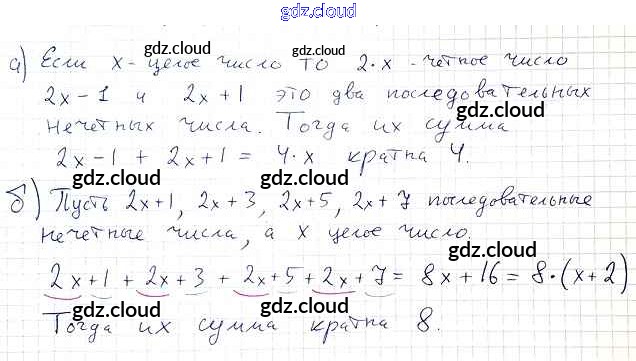 gdz.cloud
а) Если x - целое число то 2·x - четное число
gdz.cloud gdz.cloud
2x-1 и 2x+1 это два последовательных
gdz.cloud gdz.cloud
нечетных числа. Тогда их сумма
gdz.cloud
2x-1 + 2x+1 = 4·x кратна 4.
gdz.cloud gdz.cloud
б) Пусть 2x+1, 2x+3, 2x+5, 2x+7 последовательные
gdz.cloud gdz.cloud
нечетные числа, а x целое число.
gdz.cloud gdz.cloud
2x+1 + 2x+3 + 2x+5 + 2x+7 = 8x+16 = 8·(x+2)
gdz.cloud gdz.cloud
Тогда их сумма кратна 8.
gdz.cloud